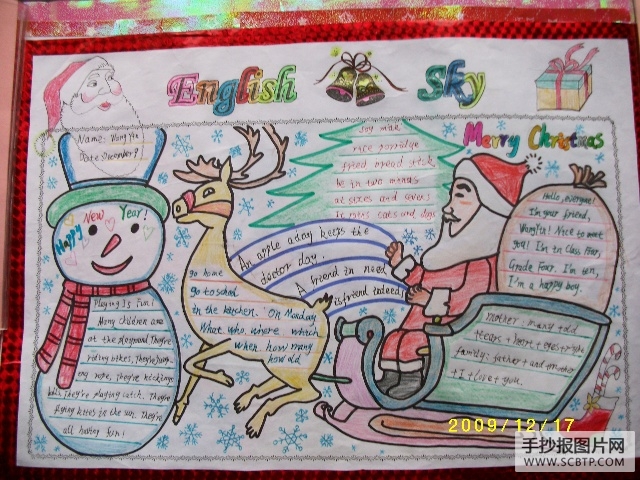 English Sky
Merry Christmas
Name: Wang Yin
Date December 7
Happy New Year!
Playing Is Fun!
Many children are
at the playground. They're
riding bikes, They're jump-
ing rope, They're kicking a
ball, They're playing catch, They're
flying kites in the sun. They're
all having fun!
go home
go to school
in the kitchen. On Monday
What who where which
when how many
how old
An apple a day keeps the
doctor day.
A friend in need
is friend indeed
soy milk
rice porridge
fried bread stick
be in two minds
at sixes and sevens
It rains cats and dogs
Hello, everyone!
I'm your friend,
Wang Yin! Nice to meet
you! I'm in Class Four,
Grade Four. I'm ten,
I'm a happy boy.
mother: many told
tears + heart + eyes + right
family: father + and + mother
+ I + love + you.
2009/12/17
手抄报图片网
WWW.SCBTP.COM